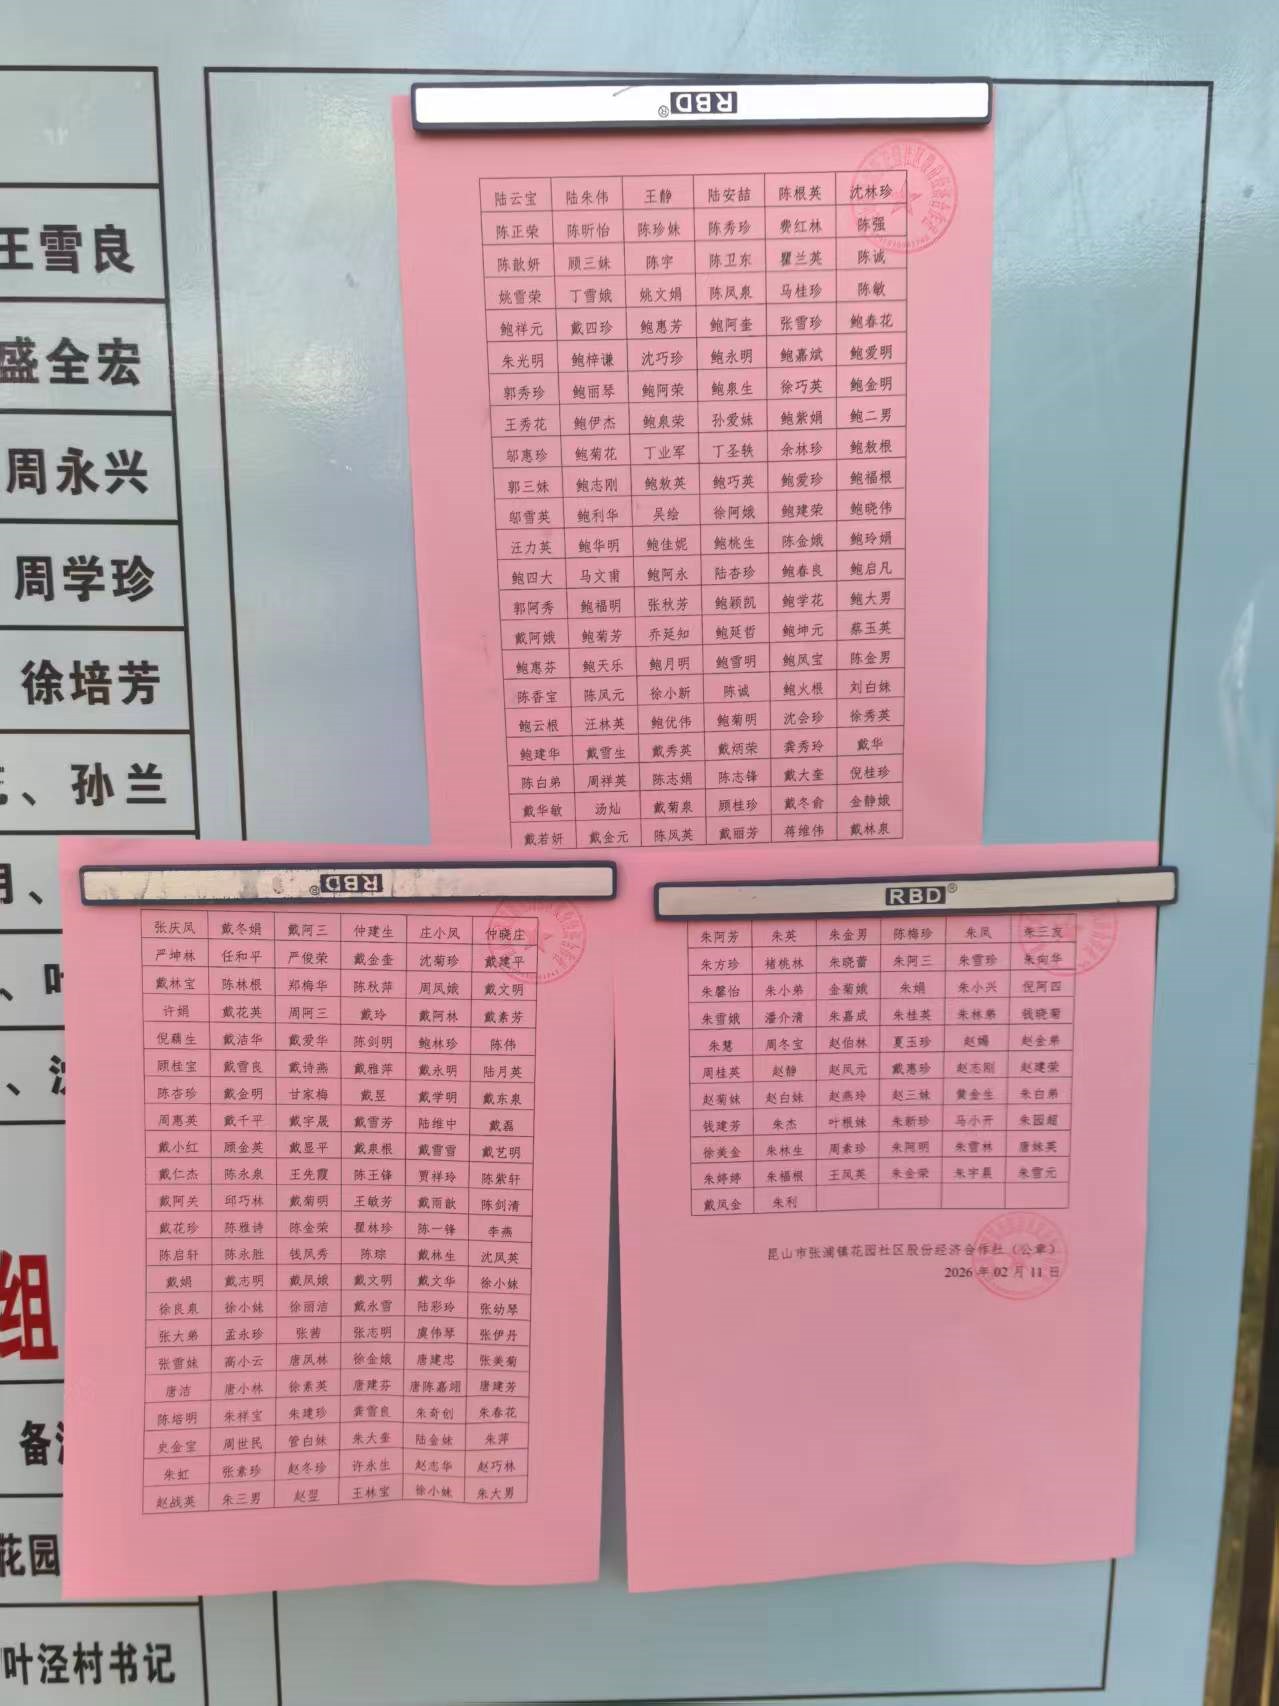 王雪良
盛全宏
周永兴
周学珍
徐培芳
、孙兰
组
花园
叶泾村书记
RBD®
陆云宝 陆朱伟 王静 陆安喆 陈根英 沈林珍
陈正荣 陈昕怡 陈珍妹 陈秀珍 费红林 陈强
陈歆妍 顾三妹 陈宇 陈卫东 瞿兰英 陈诚
姚雪荣 丁雪娥 姚文娟 陈凤泉 马桂珍 陈敏
鲍祥元 戴四珍 鲍惠芳 鲍阿奎 张雪珍 鲍春花
朱光明 鲍梓谦 沈巧珍 鲍永明 鲍嘉斌 鲍爱明
郭秀珍 鲍丽琴 鲍阿荣 鲍泉生 徐巧英 鲍金明
王秀花 鲍伊杰 鲍泉荣 孙爱妹 鲍紫娟 鲍二男
邬惠珍 鲍菊花 丁业军 丁圣轶 余林珍 鲍敖根
郭三妹 鲍志刚 鲍敖英 鲍巧英 鲍爱珍 鲍福根
邬雪英 鲍利华 吴绘 徐阿娥 鲍建荣 鲍晓伟
汪力英 鲍华明 鲍佳妮 鲍桃生 陈金娥 鲍玲娟
鲍四大 马文甫 鲍阿永 陆杏珍 鲍春良 鲍启凡
郭阿秀 鲍福明 张秋芳 鲍颖凯 鲍学花 鲍大男
戴阿娥 鲍菊芳 乔延知 鲍延哲 鲍坤元 蔡玉英
鲍惠芬 鲍天乐 鲍月明 鲍雪明 鲍凤宝 陈金男
陈香宝 陈凤元 徐小新 陈诚 鲍火根 刘白妹
鲍云根 汪林英 鲍优伟 鲍菊明 沈会珍 徐秀英
鲍建华 戴雪生 戴秀英 戴炳荣 龚秀玲 戴华
陈白弟 周祥英 陈志娟 陈志锋 戴大奎 倪桂珍
戴华敏 汤灿 戴菊泉 顾桂珍 戴冬俞 金静娥
戴若妍 戴金元 陈凤英 戴丽芳 蒋维伟 戴林泉
RBD®
张庆凤 戴冬娟 戴阿三 仲建生 庄小凤 仲晓庄
严坤林 任和平 严俊荣 戴金奎 沈菊珍 戴建平
戴林宝 陈林根 郑梅华 陈秋萍 周凤娥 戴文明
许娟 戴花英 周阿三 戴玲 戴阿林 戴素芳
倪藕生 戴洁华 戴爱华 陈剑明 鲍林珍 陈伟
顾桂宝 戴雪良 戴诗燕 戴雅萍 戴永明 陆月英
陈杏珍 戴金明 甘家梅 戴昱 戴学明 戴东泉
周惠英 戴千平 戴宇晟 戴雪芳 陆维中 戴磊
戴小红 顾金英 戴显平 戴泉根 戴雪雪 戴艺明
戴仁杰 陈永泉 王先霞 陈王锋 贾祥玲 陈紫轩
戴阿关 邱巧林 戴菊明 王敏芳 戴雨歆 陈剑清
戴花珍 陈雅诗 陈金荣 瞿林珍 陈一锋 李燕
陈启轩 陈永胜 钱凤秀 陈琮 戴林生 沈凤英
戴娟 戴志明 戴凤娥 戴文明 戴文华 徐小妹
徐良泉 徐小妹 徐丽洁 戴永雪 陆彩玲 张幼琴
张大弟 孟永珍 张茜 张志明 虞伟琴 张伊丹
张雪妹 高小云 唐凤林 徐金娥 唐建忠 张美菊
唐洁 唐小林 徐素英 唐建芬 唐陈嘉翊 唐建芳
陈培明 朱祥宝 朱建珍 龚雪良 朱奇创 朱春花
史金宝 周世民 管白妹 朱大奎 陆金妹 朱萍
朱虹 张素珍 赵冬珍 许永生 赵志华 赵巧林
赵战英 朱三男 赵翌 王林宝 徐小妹 朱大男
RBD®
朱阿芳 朱英 朱金男 陈梅珍 朱凤 朱三友
朱方珍 褚桃林 朱晓蕾 朱阿三 朱雪珍 朱向华
朱馨怡 朱小弟 金菊娥 朱娟 朱小兴 倪阿四
朱雪娥 潘介清 朱嘉成 朱桂英 朱林弟 钱晓菊
朱慧 周冬宝 赵伯林 夏玉珍 赵嫣 赵金弟
周桂英 赵静 赵凤元 戴惠珍 赵志刚 赵建荣
赵菊妹 赵白妹 赵燕玲 赵三妹 黄金生 朱白弟
钱建芳 朱杰 叶根妹 朱新珍 马小开 朱园超
徐美金 朱林生 周素珍 朱阿明 朱雪林 唐妹英
朱婷婷 朱福根 王凤英 朱金荣 朱宇晨 朱雪元
戴凤金 朱利
昆山市张浦镇花园社区股份经济合作社（公章）
2026 年 02 月 11 日